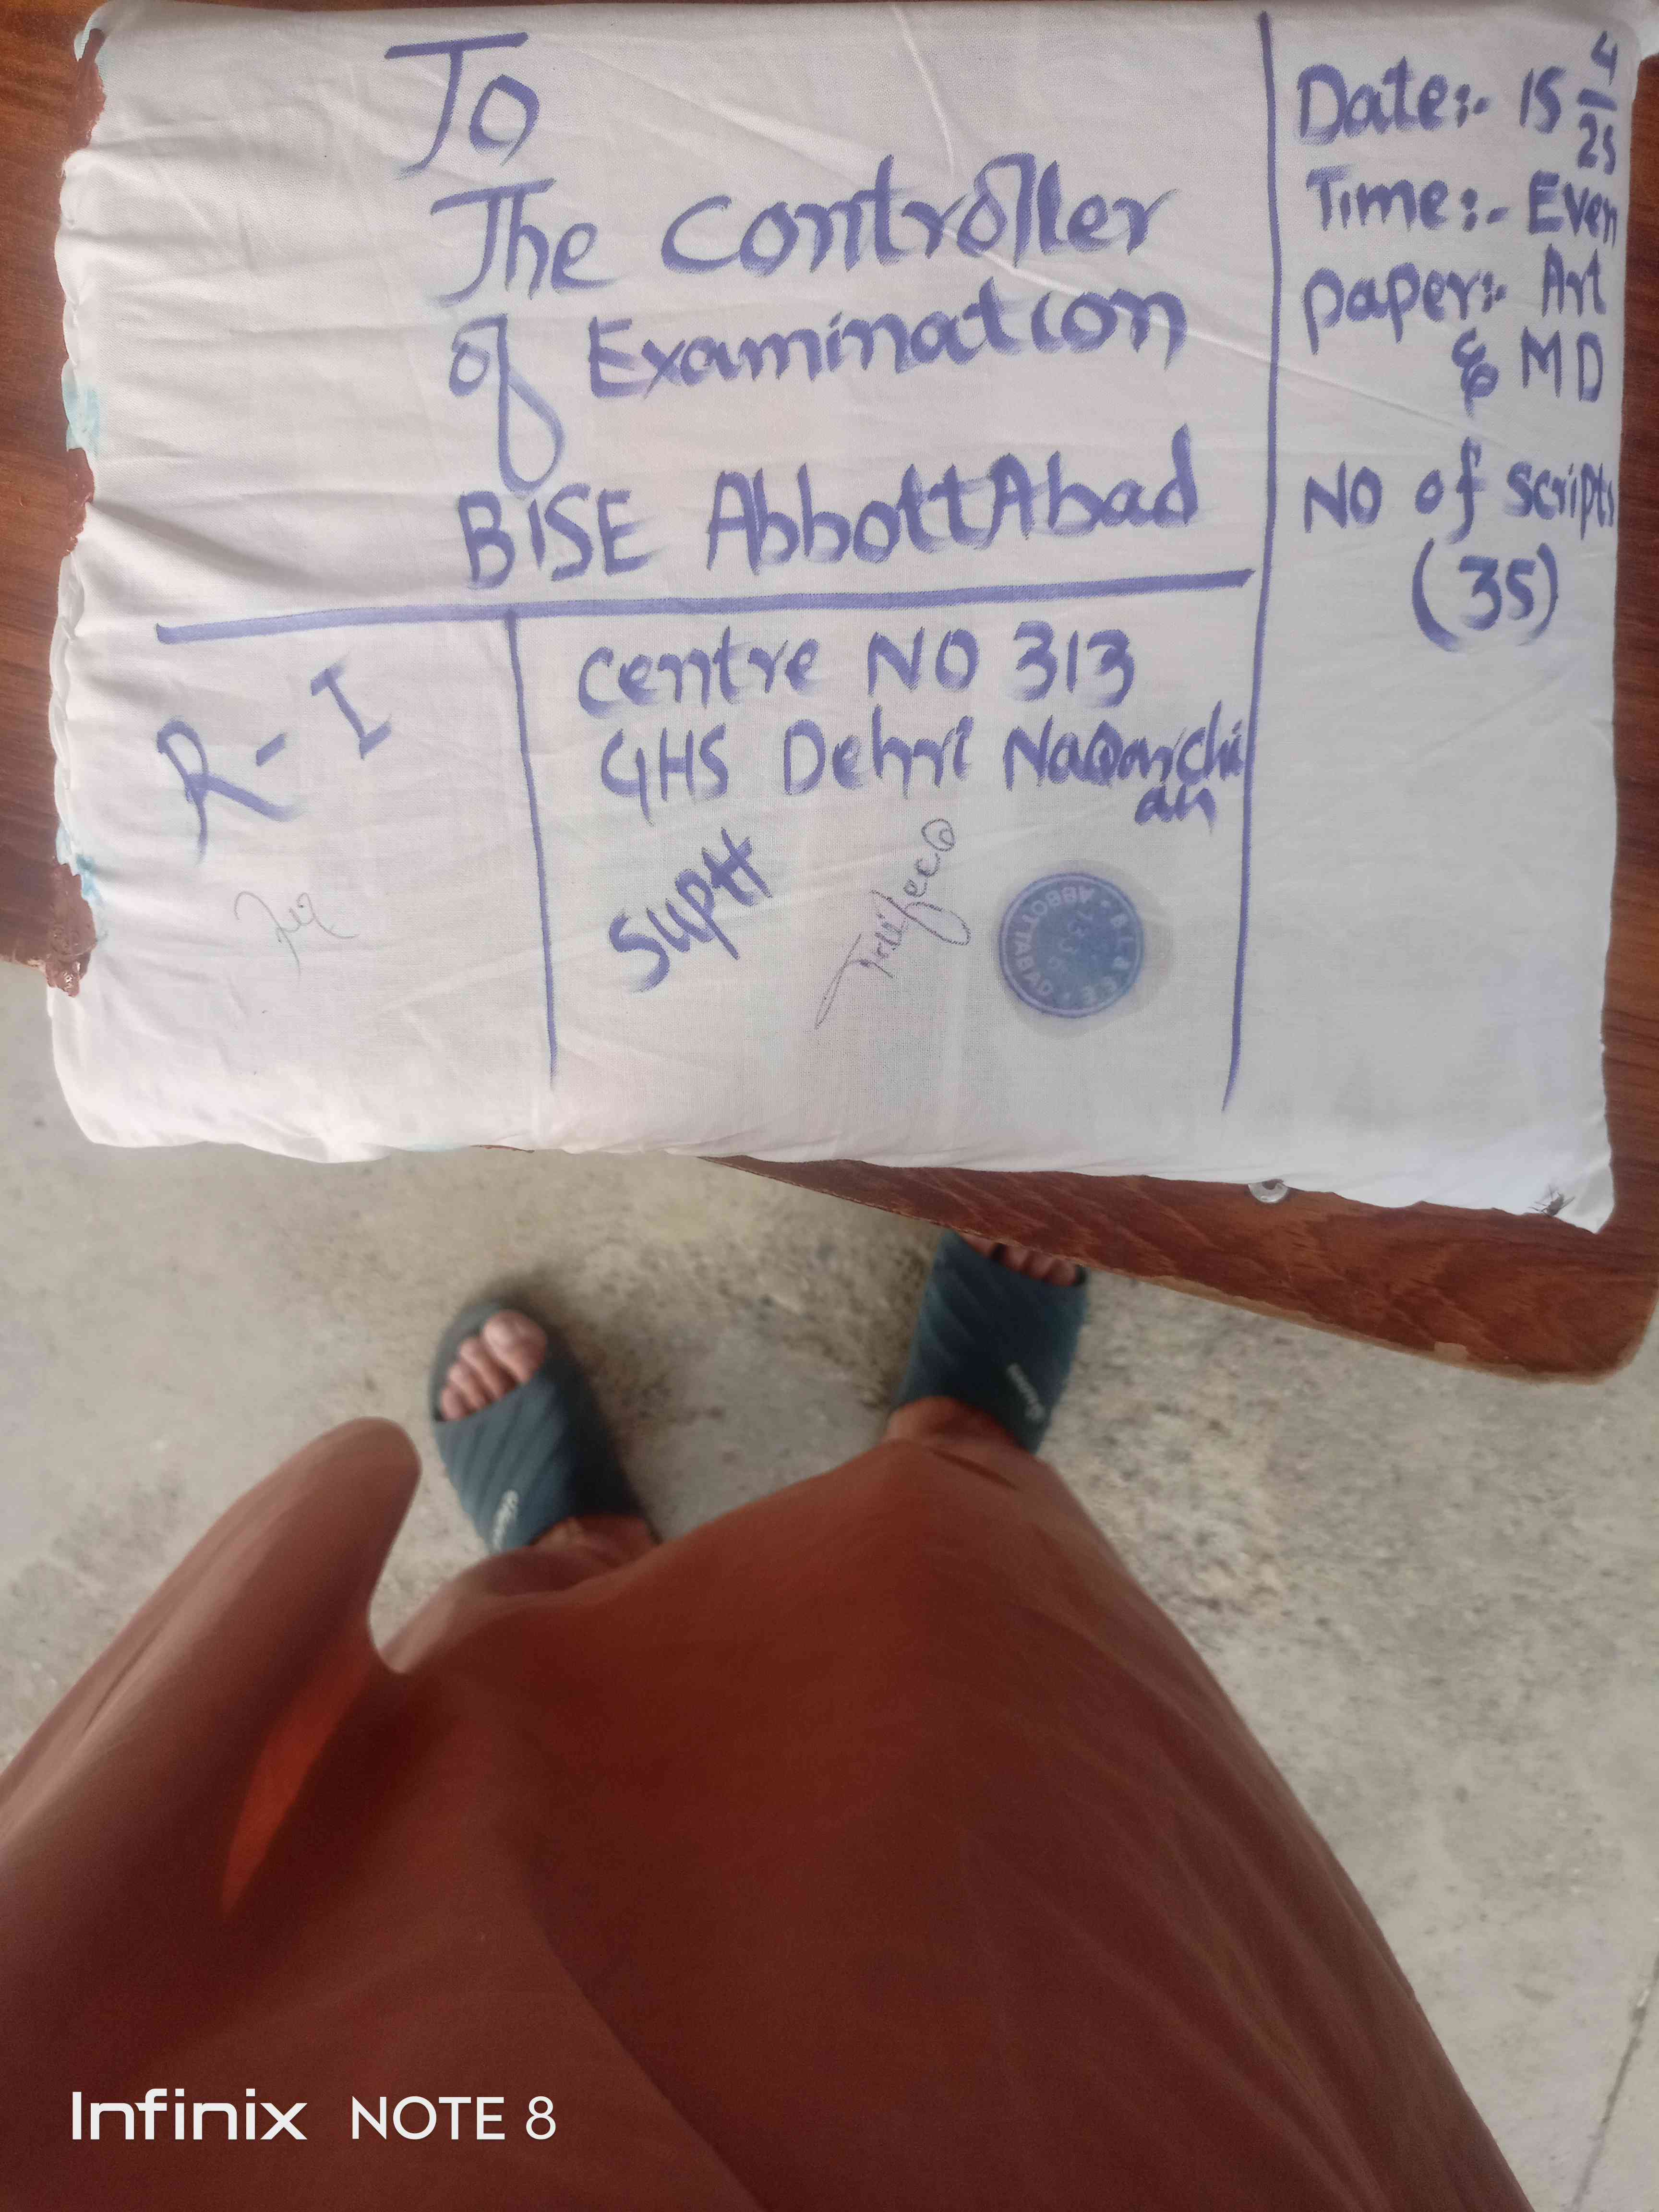 To
The Controller
of Examination
BISE AbbottAbad
Date:- 15 4/25
Time:- Even
Paper:- Art
& MD
NO of Scripts
(35)
R-I
Centre NO 313
GHS Dehri
an
Suptt
ABBOTTABAD
Infinix NOTE 8